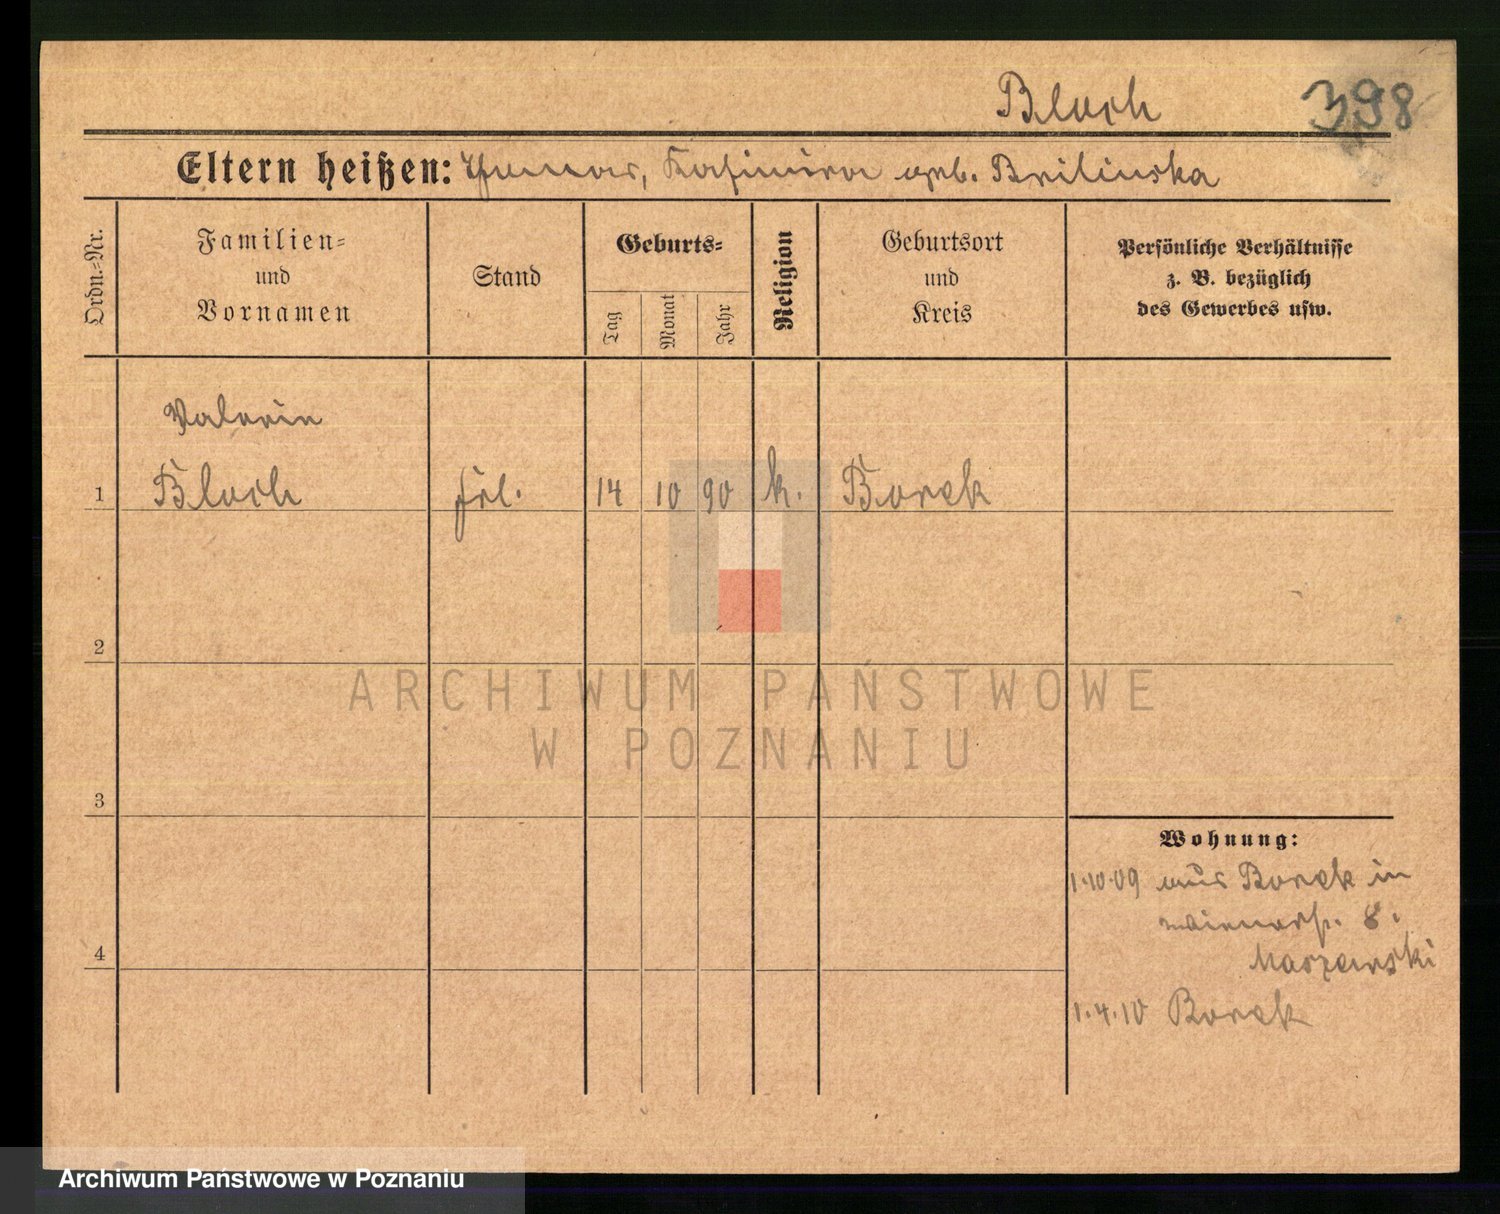 Bloch 398
Eltern heißen: Thomas, Kasimira geb. Brilinska
Ordn.=Nr.
Familien=
und
Vornamen
Stand
Geburts=
Tag
Monat
Jahr
Religion
Geburtsort
und
Kreis
Persönliche Verhältnisse
z. B. bezüglich
des Gewerbes usw.
Valerie
1 Bloch frl. 14 10 90 k. Borek
2
3
4
Wohnung:
1.10.09 aus Borek in
8.
Maszewski
1.4.10 Borek
ARCHIWUM PAŃSTWOWE
W POZNANIU
Archiwum Państwowe w Poznaniu